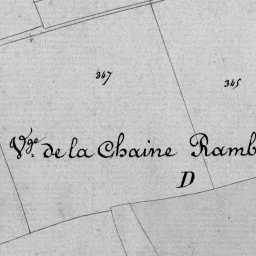 347
345
Vge. de la Chaine Ramb
D